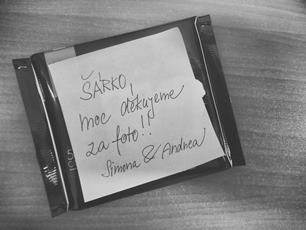 ŠÁRKO,
moc děkujeme
za foto!!
Simona & Andrea